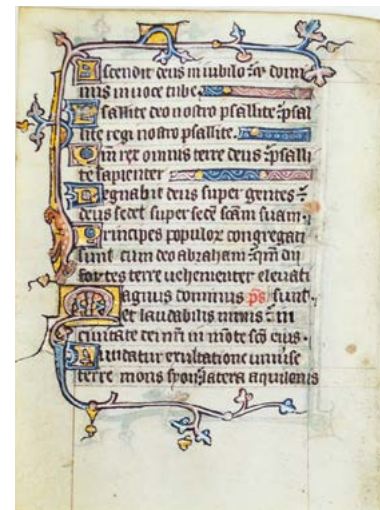 Ascendit deus in iubilo: ⁊ domi
nus in uoce tube.
Psallite deo nostro psallite: psal
lite regi nostro psallite.
Qm̄ rex omnis terre deus: psalli
te sapienter
Regnabit deus super gentes:
deus sedet super sedē scām suam.
Principes populoꝝ congregati
sunt cum deo abraham: qm̄ dii
fortes terre uehementer eleuati
Magnus dominus p̄s sunt.
et laudabilis nimis: in
ciuitate dei nr̄i in mōte scō eius.
Fundatur exultatione uniuse
terre mons syon: latera aquilonis